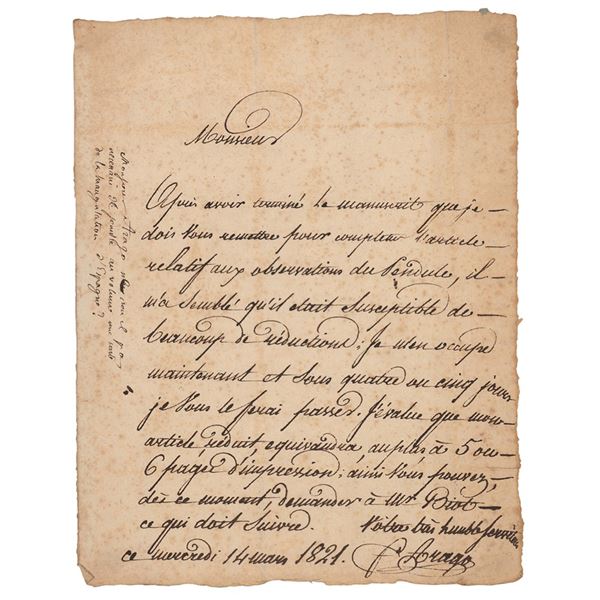 Monsieur
Après avoir terminé le manuscrit que je
dois vous remettre pour completer l'article
relatif aux observations du Pendule, il
m'a semblé qu'il était susceptible de
beaucoup de réductions; je m'en occupe
maintenant et sous quatre ou cinq jours
je vous le ferai passer. J'évalue que mon
article réduit equivaudra au plus à 5 ou
6 pages d'impression; ainsi vous pouvez,
dès ce moment, demander à Mr. Biot
ce qui doit suivre. Votre très humble serviteur
ce mercredi 14 mars 1821. F. Arago
Monsieur Arago
de joindre au volume une carte
de la d'Espagne?